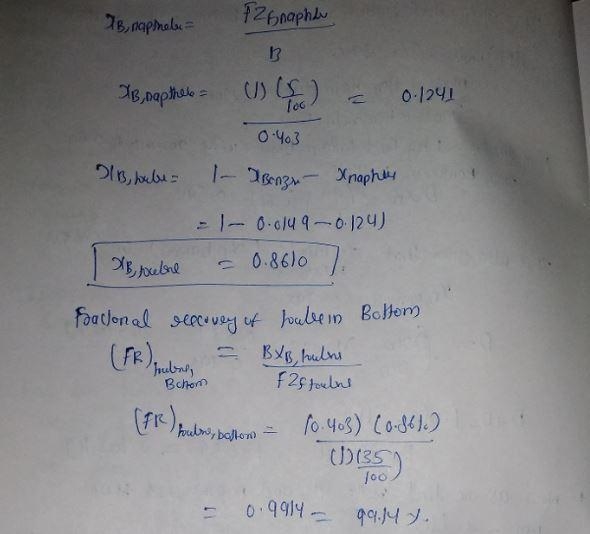 xB,napthele = FZf,napthle / B
xB,napthele = (1) (5/100) / 0.403 = 0.1241
xB,toulne = 1 - xBenzn - xnapthle
= 1 - 0.0149 - 0.1241
xB,toulne = 0.8610
Fractional recovery of toulne in Bottom
(FR) toulne, Bottom = BxB,toulne / FZf toulne
(FR) toulne,bottom = (0.403) (0.8610) / (1)(35/100)
= 0.9914 = 99.14 %.